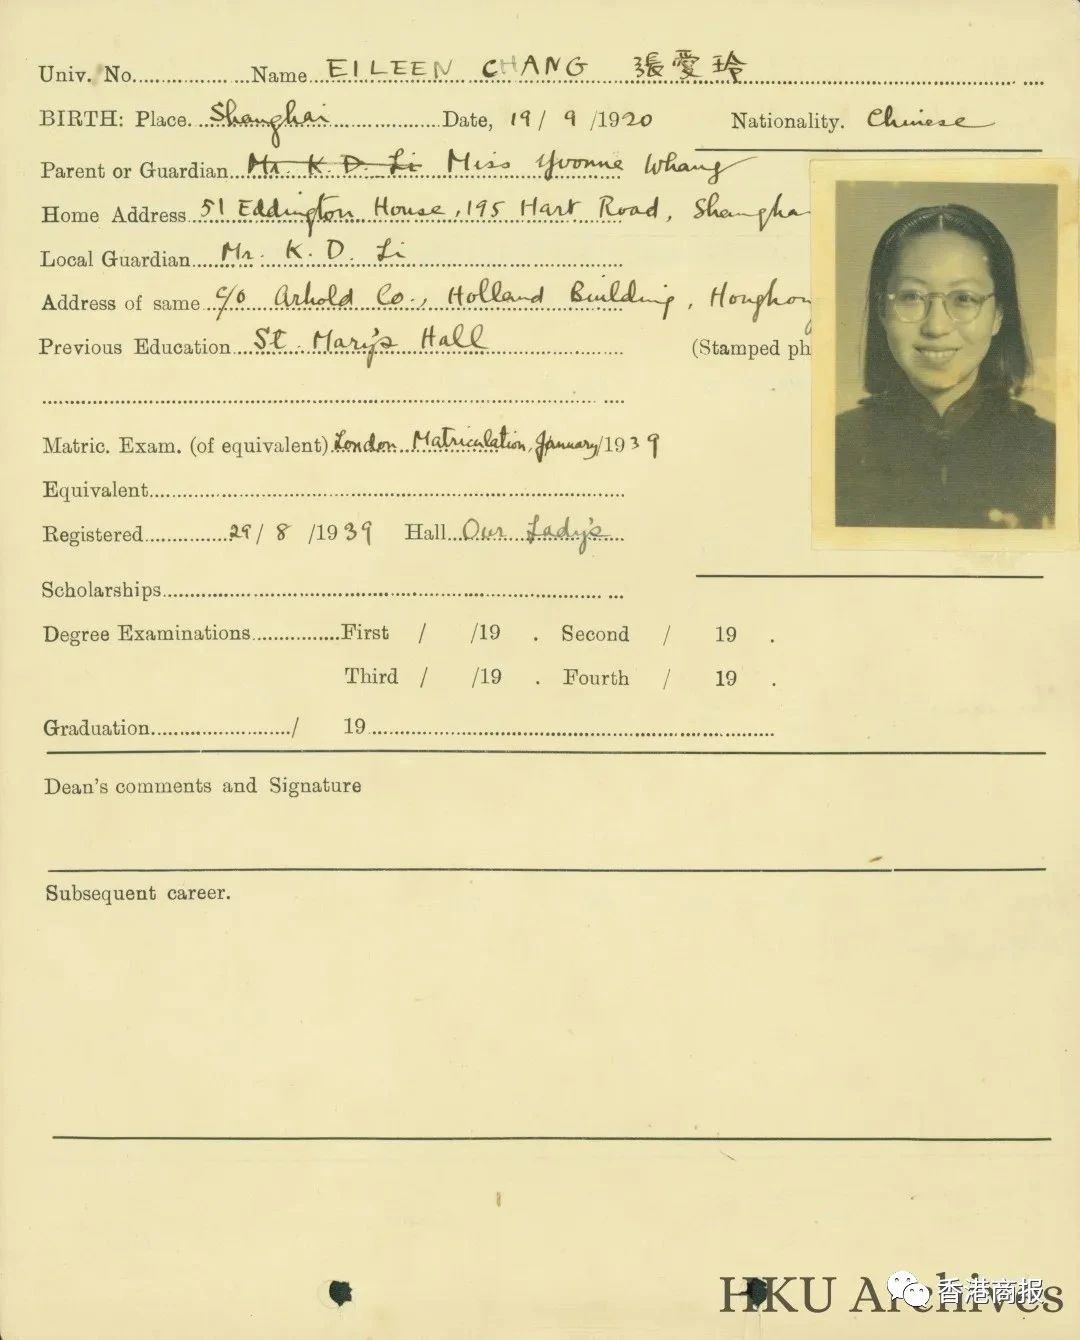 Univ. No.....................Name EILEEN CHANG 張愛玲
BIRTH: Place. Shanghai Date, 19/ 9 /1920 Nationality. Chinese
Parent or Guardian Mr. K. D. Li Miss Yvonne Whang
Home Address 51 Eddington House, 195 Hart Road, Shangha
Local Guardian Mr. K. D. Li
Address of same c/o Arhold Co., Holland Building, Hongkon
Previous Education St. Mary's Hall (Stamped ph
Matric. Exam. (of equivalent) London Matriculation, January/1939
Equivalent
Registered 29/ 8 /1939 Hall Our Lady's
Scholarships
Degree Examinations First / /19 . Second / 19 .
Third / /19 . Fourth / 19 .
Graduation / 19
Dean's comments and Signature
Subsequent career.
HKU Archives
香港商报